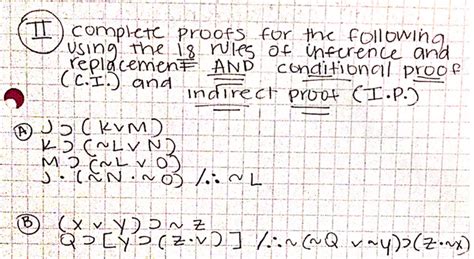 II complete proofs for the following
using the 18 rules of inference and
replacement AND conditional proof
(C.I.) and indirect proof (I.P.)
A J ⊃ (K v M)
K ⊃ (~L v N)
M ⊃ (~L v O)
J · (~N · ~O) /∴ ~L
B (X v Y) ⊃ ~Z
Q ⊃ [Y ⊃ (Z · v)] /∴ ~(~Q v ~Y) ⊃ (Z · ~X)